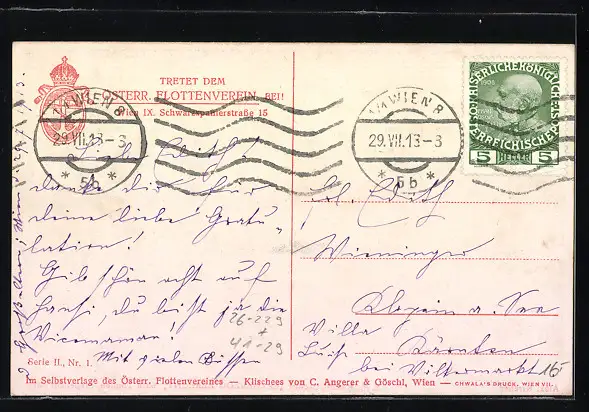 TRETET DEM
ÖSTERR. FLOTTENVEREIN BEI!
Wien IX. Schwarzspanierstraße 15
1/1 WIEN 8
29.VII.13-3
* 5b *
1/1 WIEN 8
29.VII.13-3
* 5b *
KAISERLICHE KÖNIGLICHE
ÖSTERREICHISCHE POST
5 HELLER 5
Liebe Edith!
danke dir für
deine liebe Gratu-
lation!
Gib schön acht auf
Hansi, du bist ja die
Vicemama!
Mit vielen Küssen
Frl. Edith
Wieninger
Klopein a. See
Villa
Luise Kärnten
bei Völkermarkt
26-229
+
41-29
16,-
Serie II., Nr. 1.
Im Selbstverlage des Österr. Flottenvereines — Klischees von C. Angerer & Göschl, Wien — CHWALA'S DRUCK, WIEN VII.